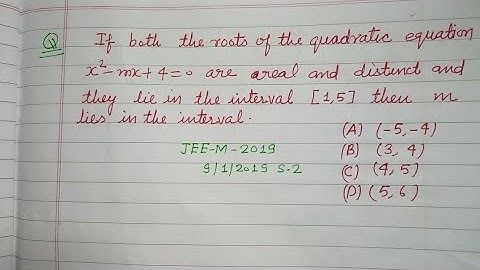 Q If both the roots of the quadratic equation
x²-mx+4=0 are real and distinct and
they lie in the interval [1,5] then m
lies in the interval.
(A) (-5,-4)
JEE-M-2019 (B) (3, 4)
9/1/2019 S-2 (C) (4, 5)
(D) (5, 6)